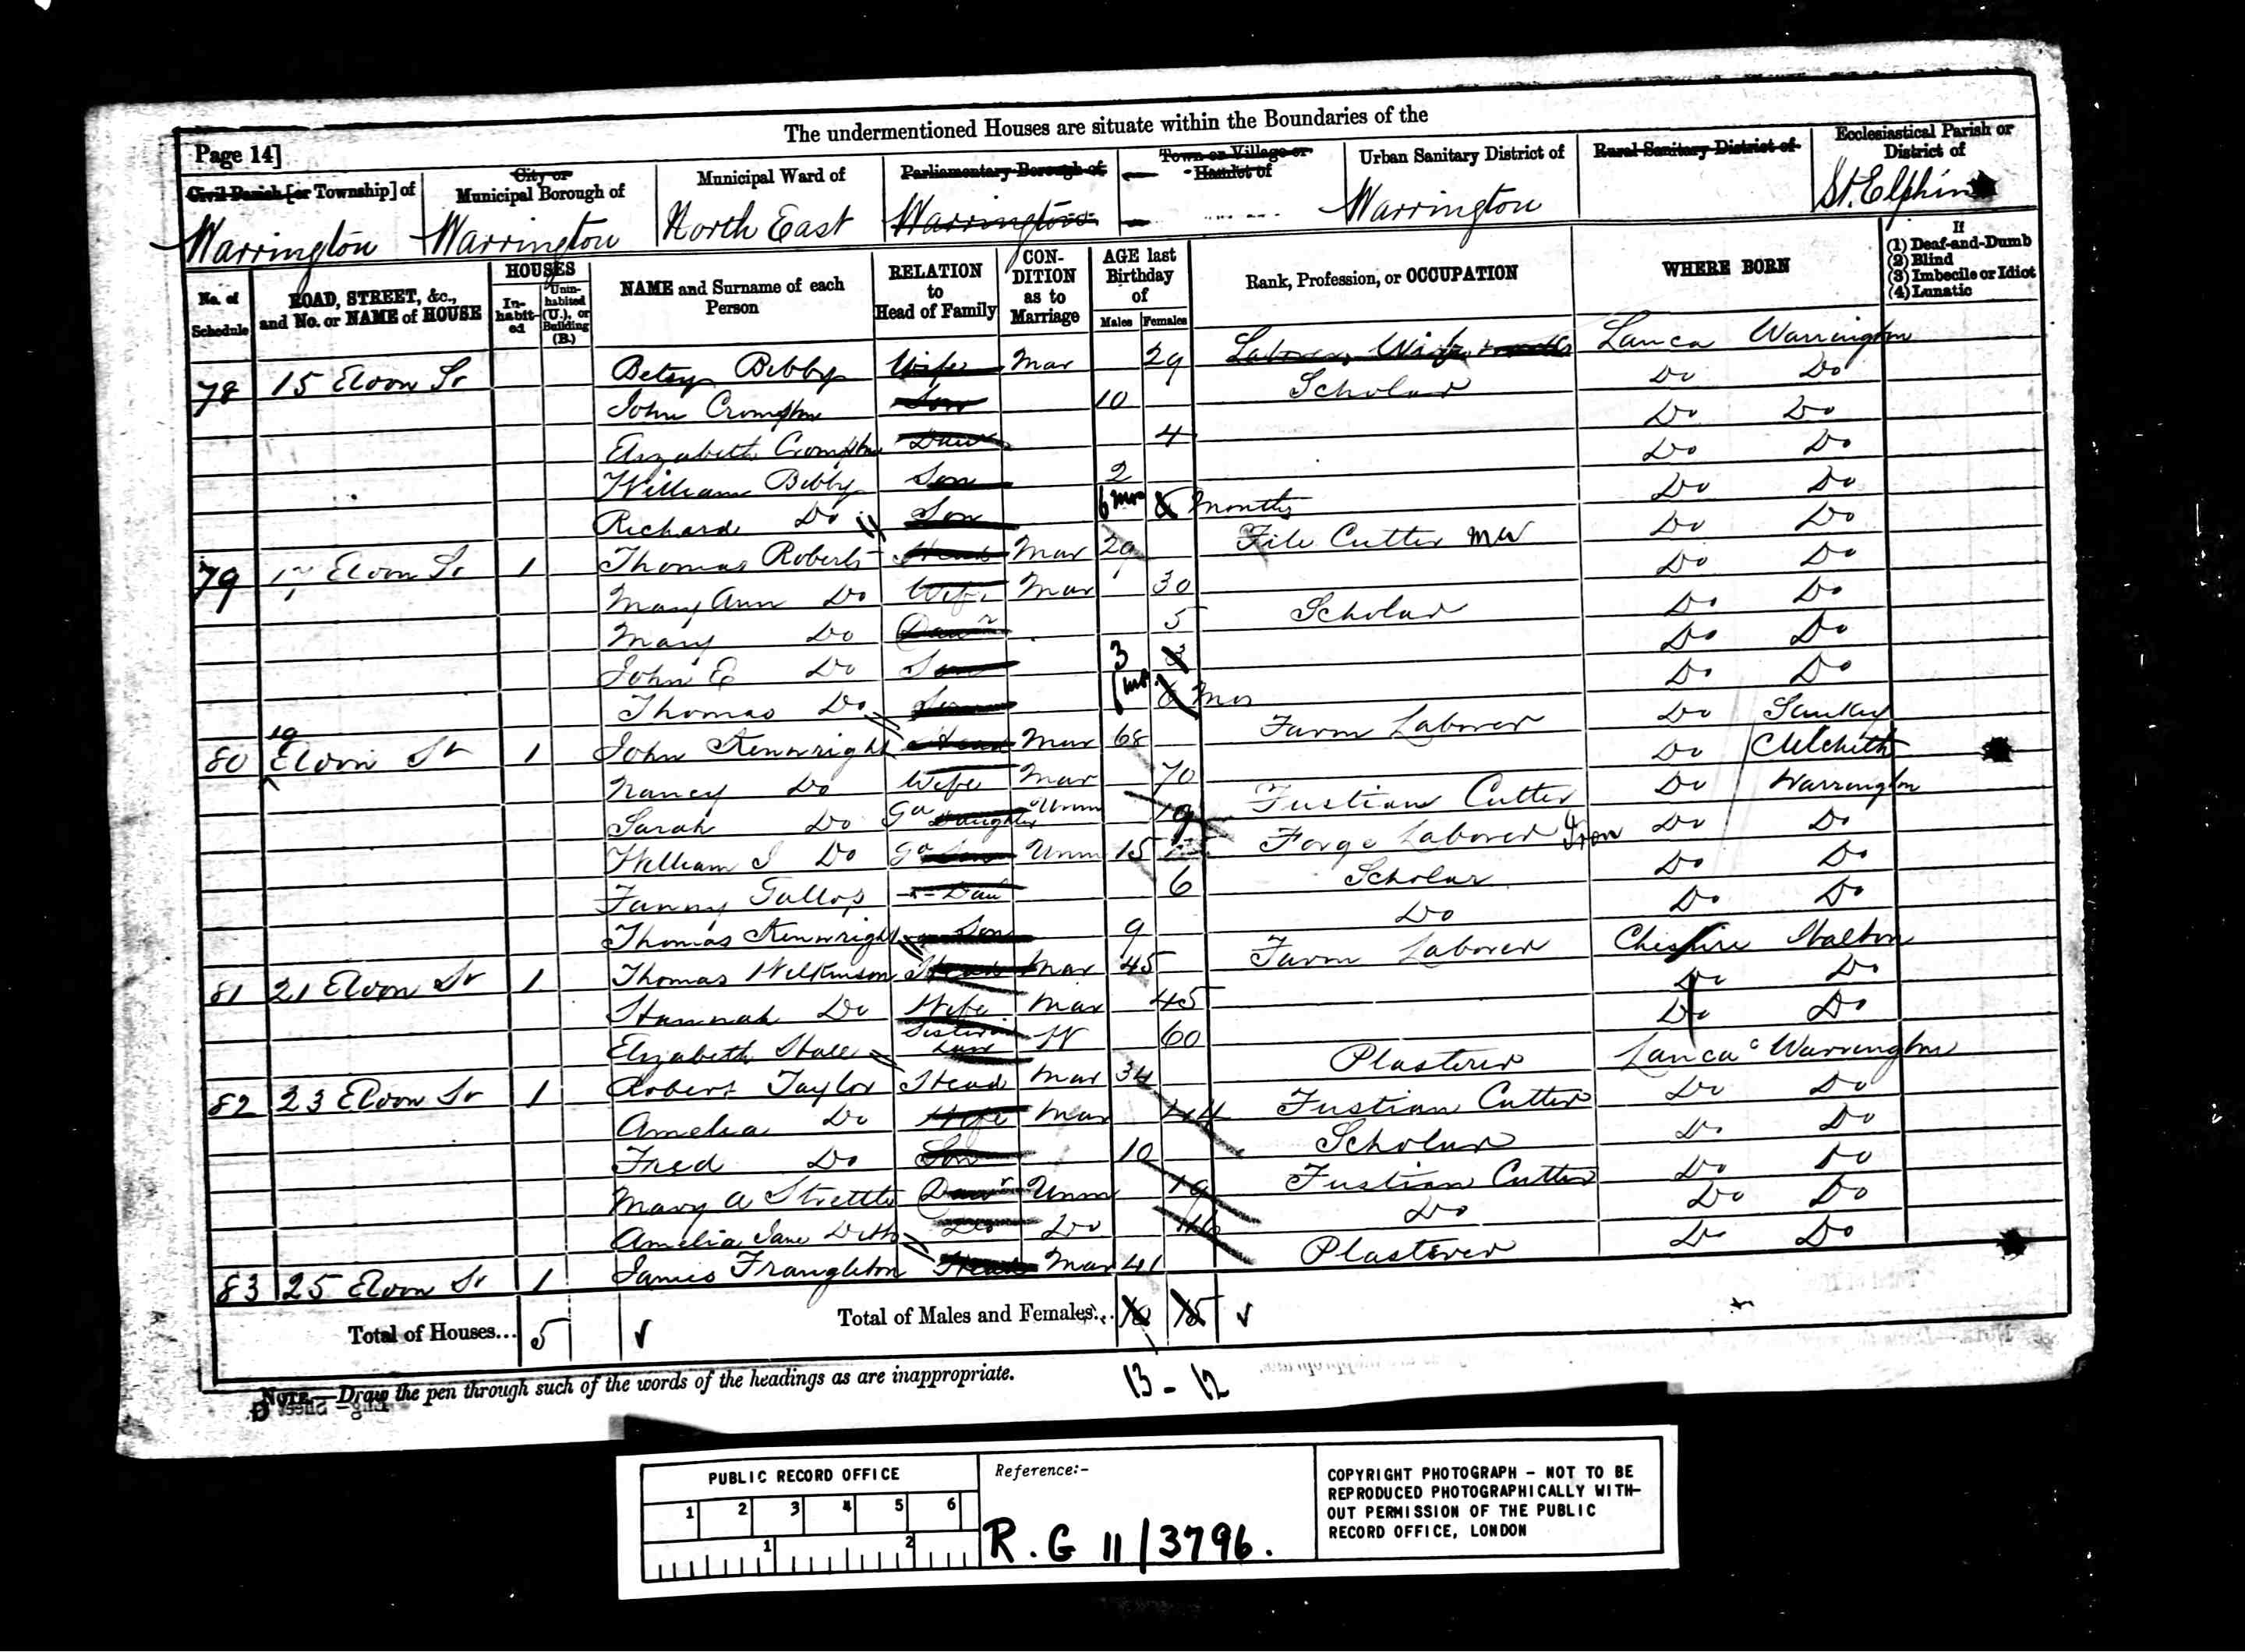 The undermentioned Houses are situate within the Boundaries of the
Page 14]
Civil Parish [or Township] of
City or Municipal Borough of
Municipal Ward of
Parliamentary Borough of
Town or Village or Hamlet of
Urban Sanitary District of
Rural Sanitary District of
Ecclesiastical Parish or District of
Warrington Warrington North East Warrington Warrington St. Elphin
No. of Schedule
ROAD, STREET, &c., and No. or NAME of HOUSE
HOUSES
In-habit-ed
Unin-habited (U.), or Building (B.)
NAME and Surname of each Person
RELATION to Head of Family
CON-DITION as to Marriage
AGE last Birthday of
Males Females
Rank, Profession, or OCCUPATION
WHERE BORN
If
(1) Deaf-and-Dumb
(2) Blind
(3) Imbecile or Idiot
(4) Lunatic
78 15 Eldon St Betsy Bibby Wife Mar 29 Laborers Wife Lanca Warrington
John Crompton Son 10 Scholar Do Do
Elizabeth Crompton Daur 4 Do Do
William Bibby Son 2 Do Do
Richard Do Son 6 mos 6 months Do Do
79 17 Eldon St 1 Thomas Roberts Head Mar 29 File Cutter Do Do
Mary Ann Do Wife Mar 30 Do Do
Mary Do Daur 5 Scholar Do Do
John E Do Son 3 3 Do Do
Thomas Do Son mos 6 Mos Do Do
80 19 Eldon St 1 John Kenwright Head Mar 68 Farm Laborer Do Sankey
Nancy Do Wife Mar 70 Do Culcheth
Sarah Do Ga Daughter Unm 19 Fustian Cutter Do Warrington
William J Do Ga Son Unm 15 Forge Laborer Iron Do Do
Fanny Gallop Dau 6 Scholar Do Do
Thomas Kenwright Son 9 Do Do Do
81 21 Eldon St 1 Thomas Wilkinson Head Mar 45 Farm Laborer Cheshire Walton
Hannah Do Wife Mar 45 Do Do
Elizabeth Hall Sister in Law W 60 Do Do
82 23 Eldon St 1 Robert Taylor Head Mar 34 Plasterer Lanca Warrington
Amelia Do Wife Mar 44 Fustian Cutter Do Do
Fred Do Son 10 Scholar Do Do
Mary A Strettle Daur Unm 19 Fustian Cutter Do Do
Amelia Jane Ditto Do Do 16 Do Do Do
83 25 Eldon St 1 James Frangleton Head Mar 41 Plasterer Do Do
Total of Houses... 5
Total of Males and Females...
13 - 12
NOTE.—Draw the pen through such of the words of the headings as are inappropriate.
PUBLIC RECORD OFFICE
1 2 3 4 5 6
1 2
Reference:-
R.G 11/3796.
COPYRIGHT PHOTOGRAPH - NOT TO BE
REPRODUCED PHOTOGRAPHICALLY WITH-
OUT PERMISSION OF THE PUBLIC
RECORD OFFICE, LONDON